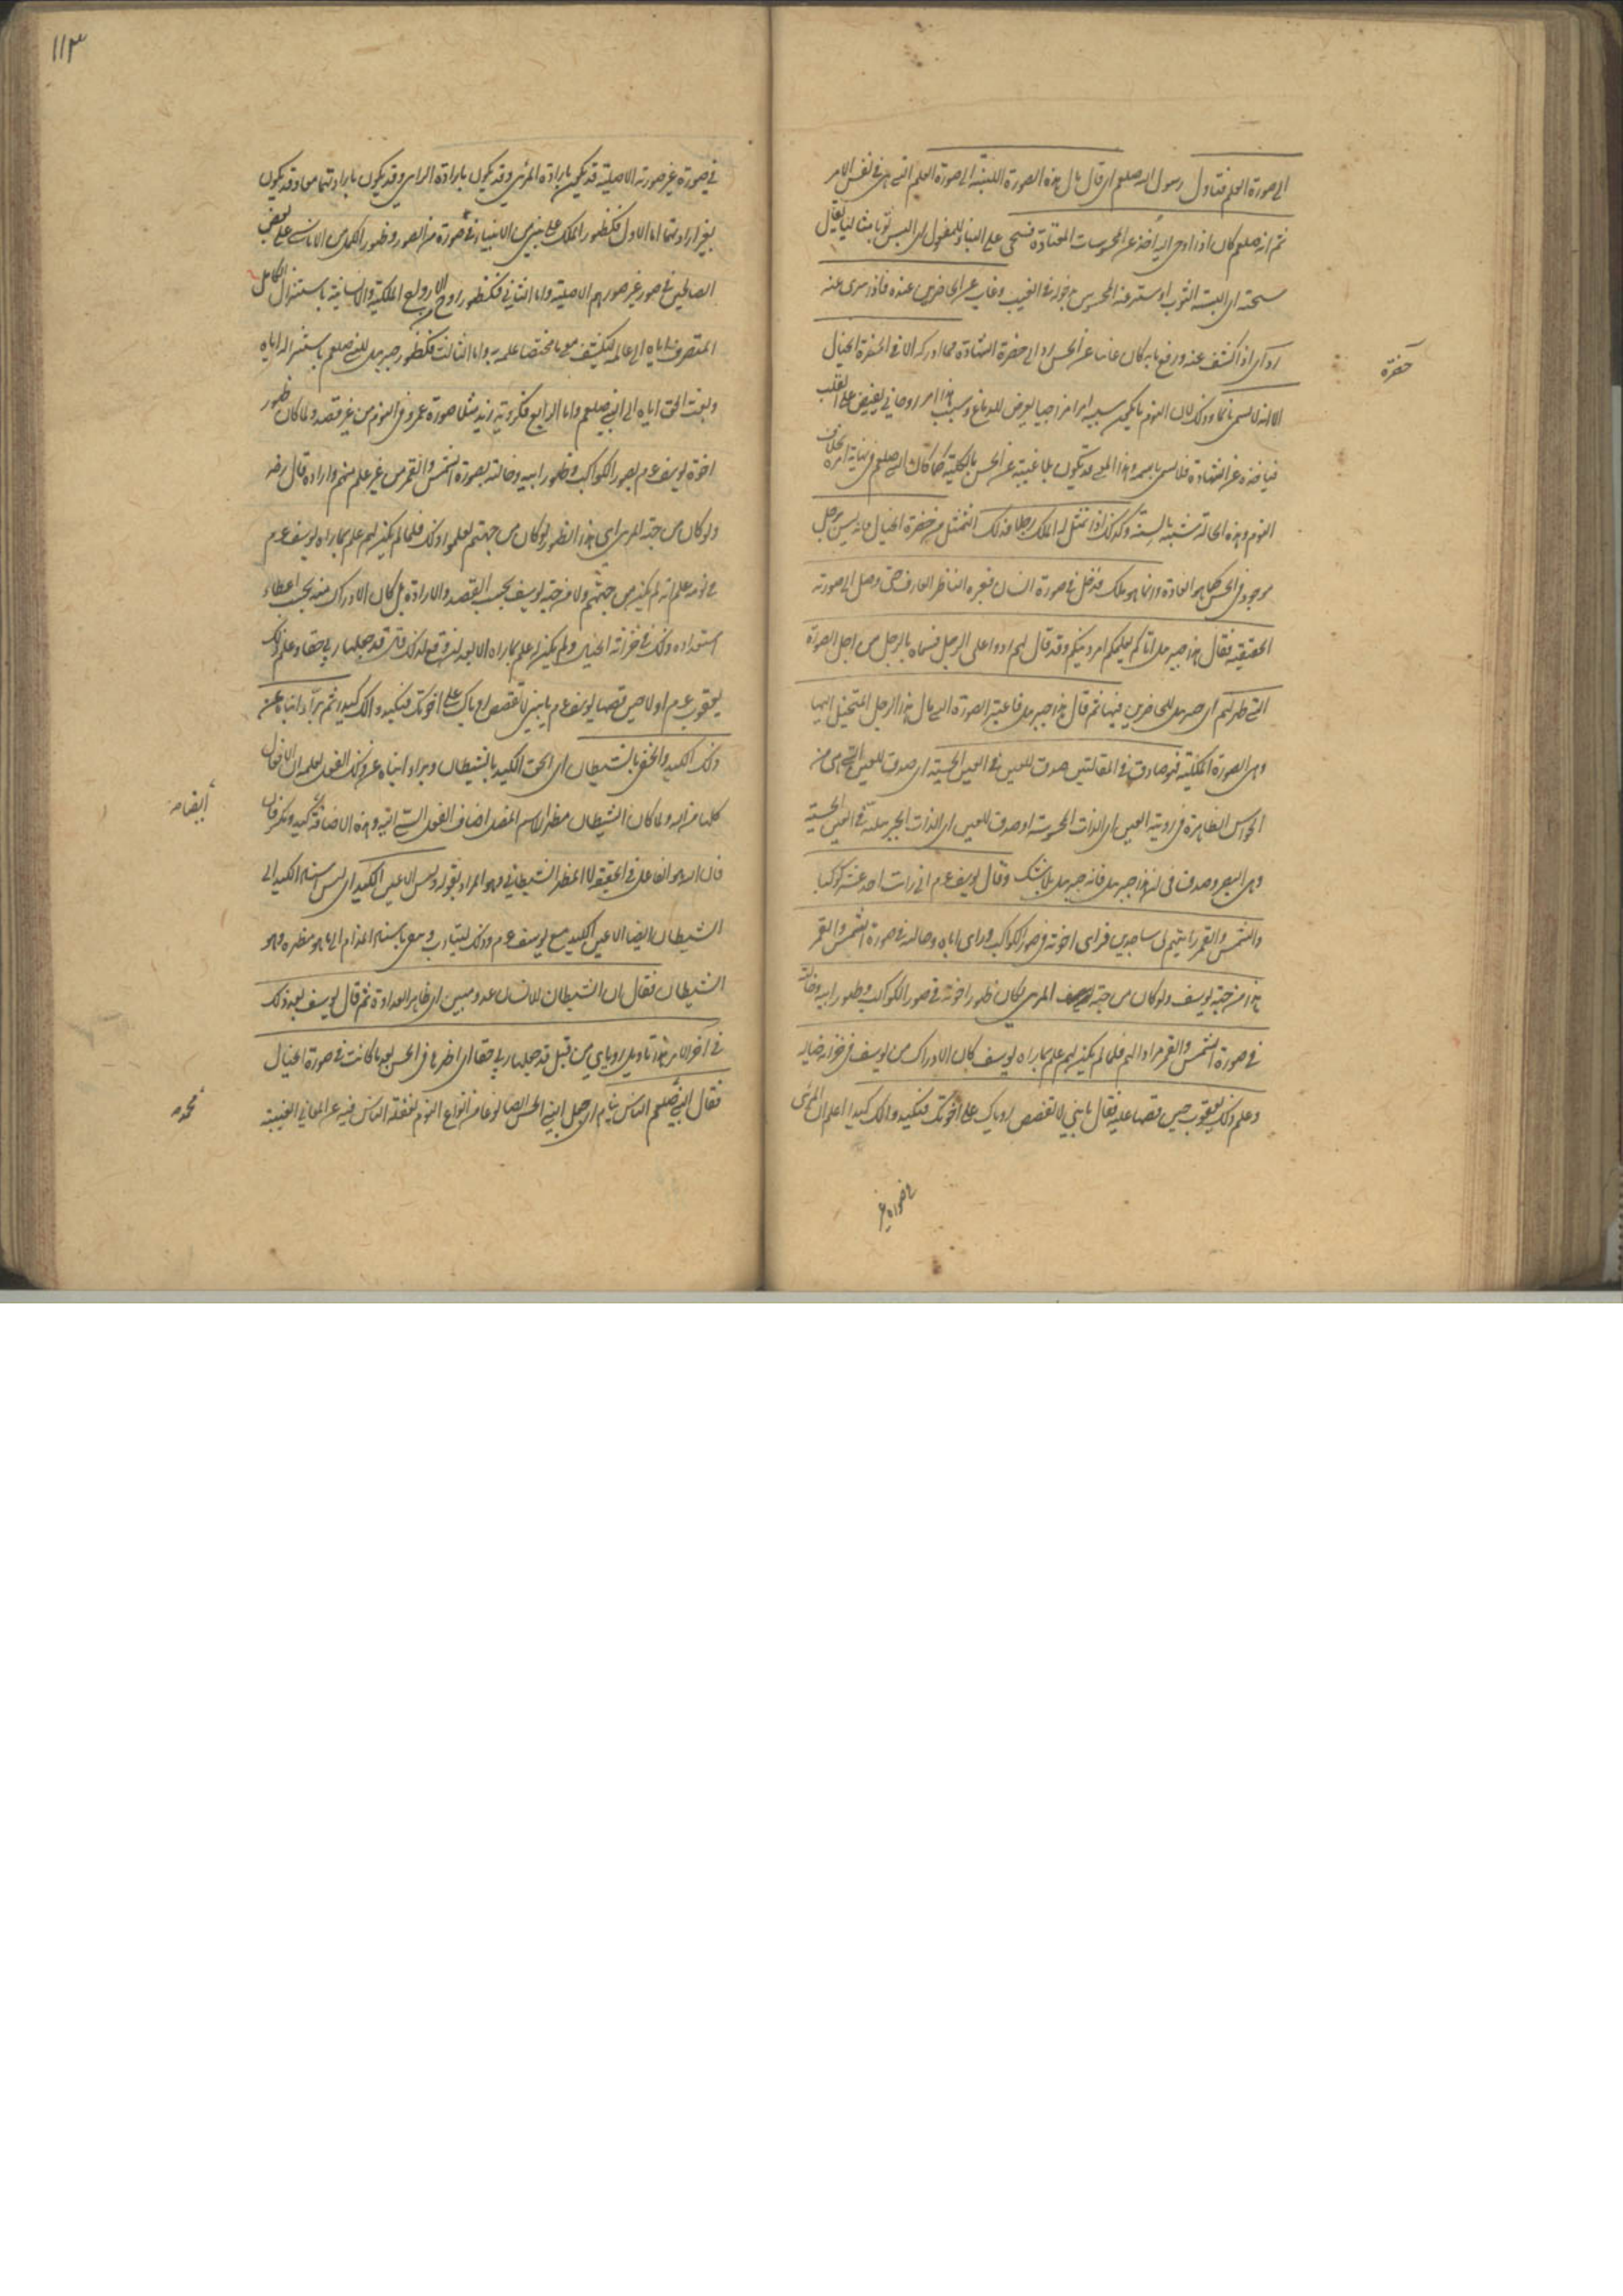 الى صورة العلم فتاول رسول الله صلعم اى قال مال هذه الصورة اللبنية الى صورة العلم التى هى فى نفس الامر
ثم انه صلعم كان اذا اوحى اليه اخذ عن المحسوسات المعتادة فسجى على البناء للمفعول اى البس ثوبا مثاليا يقال
سجيته اى البسته الثوب او ستر عنه المحسوس بدخوله فى الغيب وغاب عن الحاضرين عنده فاذا سرى عنه
رد اى اذا كشف عنه ورفع ما به كان غايبا عن الحس رد الى حضرة الشهادة فما ادركه الا فى الحضرة الخيال
حضرة
الا انه لا يسمى نائما وذلك لان النوم ما يكون سببه امرا مزاجيا يعرض للدماغ وسبب هذا امر روحانى يفيض على القلب
فياخذه عن الشهادة فلا يسمى باسمه وهذا المعنى قد يكون بلا غيبة عن الحس بالكلية كما كان له صلعم فى نهاية امره بخلاف
النوم وهذه الحالة شبيهة بالسنة وكذلك اذا تمثل له الملك رجلا فذلك التمثل من حضرة الخيال فانه ليس برجل
موجود فى الحس كما هو العادة وانما هو ملك فدخل فى صورة انسان فعبره الناظر العارف حتى وصل الى صورته
الحقيقية فقال هذا جبريل اتاكم يعلمكم امر دينكم وقد قال لهم ردوا على الرجل فسماه بالرجل من اجل الصورة
التى ظهر لهم اى جبريل للحاضرين فيها ثم قال هذا جبريل فاعتبر الصورة التى مال هذا الرجل المتخيل اليها
وهى الصورة الملكية فهو صادق فى المقالتين صدق للعين فى العين الحسية اى صدق للعين التى هى من
الحواس الظاهرة فى رؤية العين اى الذات المحسوسة او صدق للعين اى الذات الجبريلية فى العين الحسية
وهى البصر وصدق فى ان هذا جبريل فانه جبريل بلا شك وقال يوسف عم انى رايت احد عشر كوكبا
والشمس والقمر رايتهم لى ساجدين فراى اخوته فى صور الكواكب وراى اباه وخالته فى صورة الشمس والقمر
هذا من جهة يوسف ولو كان من جهة المرئى لكان ظهور اخوته فى صور الكواكب وظهور ابيه وخالته
فى صورة الشمس والقمر مرادا لهم فلما لم يكن لهم علم بما راه يوسف كان الادراك من يوسف فى خزانة خياله
وعلم ذلك يعقوب حين قصها عليه فقال يا بنى لا تقصص رؤياك على اخوتك فيكيدوا لك كيدا اعلم ان المرئى
١١٣
فى صورة غير صورته الاصلية قد يكون بارادة المرئى وقد يكون بارادة الرائى وقد يكون بارادتهما معا وقد يكون
بغير ارادتهما اما الاول فكظهور الملك على نبى من الانبياء فى صورة من الصور وظهور الكمل من الاناسى على بعض
الصالحين فى صور غير صورهم الاصلية واما الثانى فكظهور روح من الارواح الملكية والانسانية باستنزال الكامل
المتصرف اياه الى عالمه ليكشف معنى ما مختصا علمه به واما الثالث فكظهور جبريل للنبى صلعم باستنزاله اياه
وبعث الحق اياه الى النبى صلعم واما الرابع فكرؤية زيد مثلا صورة عمرو فى النوم من غير قصد ولما كان ظهور
اخوة يوسف عم بصور الكواكب وظهور ابيه وخالته بصورة الشمس والقمر من غير علم منهم وارادة قال رضه
ولو كان من جهة المرئى اى هذا الظهور لو كان من جهتهم لعلموا ذلك فلما لم يكن لهم علم بما راه يوسف عم
فى نومه علم انه لم يكن من جهتهم ولا من جهة يوسف بحسب القصد والارادة بل كان الادراك منه بحسب اعطاء
استعداده وذلك فى خزانة الخيال ولم يكن له علم بما راه الا بعد ان وقع لذلك قال قد جعلها ربى حقا وعلم ذلك
يعقوب عم اولا حين قصها يوسف عم يا بنى لا تقصص رؤياك على اخوتك فيكيدوا لك كيدا ثم برا ابناءه عن
ذلك الكيد والحق بالشيطان اى الحق الكيد بالشيطان وبراء ابناءه عن ذلك الفعل لعلمه ان الافعال
كلها من الله ولما كان الشيطان مظهر لاسم المضل اضاف الفعل السئ اليه وهذه الاضافة كيد ومكر فان
أيضا
فان الله هو الفاعل فى الحقيقة لا المظهر الشيطانى وهو المراد بقوله وليس الا عين الكيد اى ليس اسناد الكيد الى
الشيطان ايضا الا عين الكيد مع يوسف عم وذلك ليتادب ويسمى باسناد المذام الى ما هو مظهره وهو
الشيطان فقال ان الشيطان للانسان عدو مبين اى ظاهر العداوة ثم قال يوسف بعد ذلك
فى اخر الامر هذا تاويل رؤياى من قبل قد جعلها ربى حقا اى اظهرها فى الحس بعد ما كانت فى صورة الخيال
فقال النبى صلعم الناس نيام اى جعل النبى الحس ايضا نوعا من انواع النوم لغفلة الناس فيه عن المعانى الغيبية